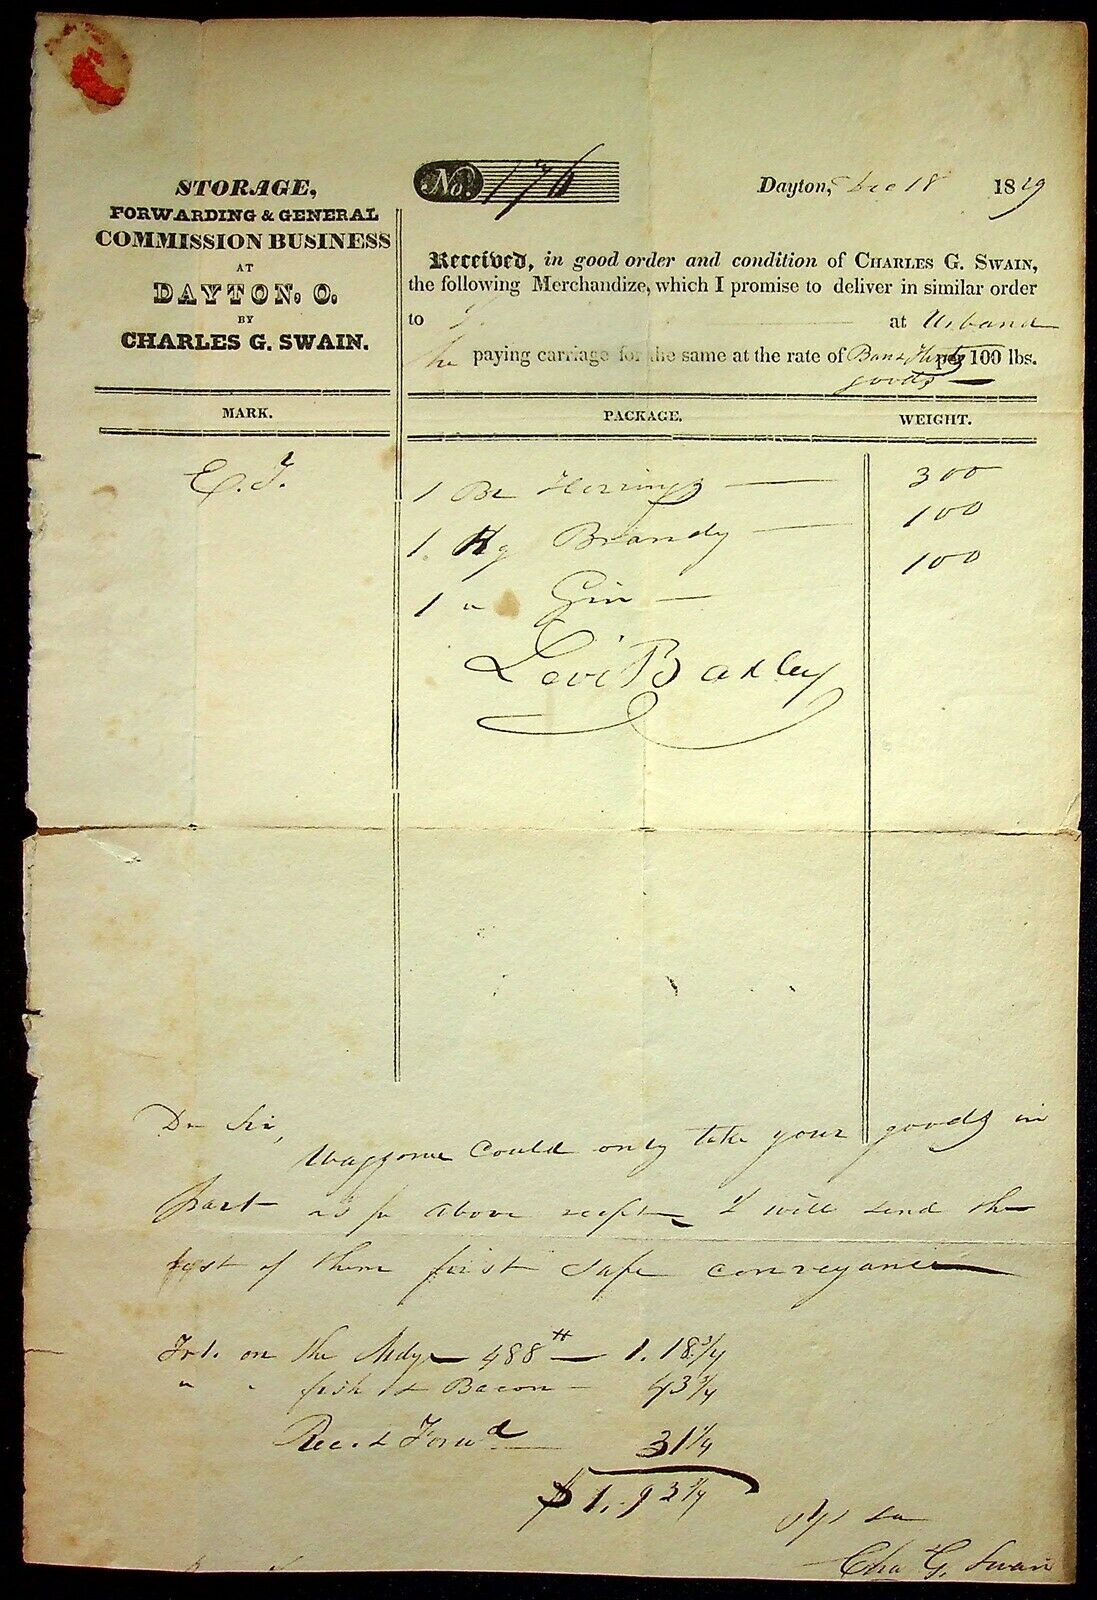 STORAGE,
FORWARDING & GENERAL
COMMISSION BUSINESS
AT
DAYTON. O.
BY
CHARLES G. SWAIN.
No. 176
Dayton, Dec 18 1829
Received, in good order and condition of CHARLES G. SWAIN,
the following Merchandize, which I promise to deliver in similar order
to at Urbana
he paying carriage for the same at the rate of per 100 lbs.
goods
MARK. PACKAGE. WEIGHT.
E. T. 1 Bl Herrings 300
1. Kg Brandy 100
1 " Gin 100
Levi Baxley
Dr Sir,
Waggoner could only take your goods in
part as pr above recpt, I will send the
rest of them first safe conveyance
Frt. on the Mdze 488 # 1.18 3/4
" " fish & Bacon 43 3/4
Rec. & Forwd 31 1/4
$1.93 3/4
Cha G. Swain